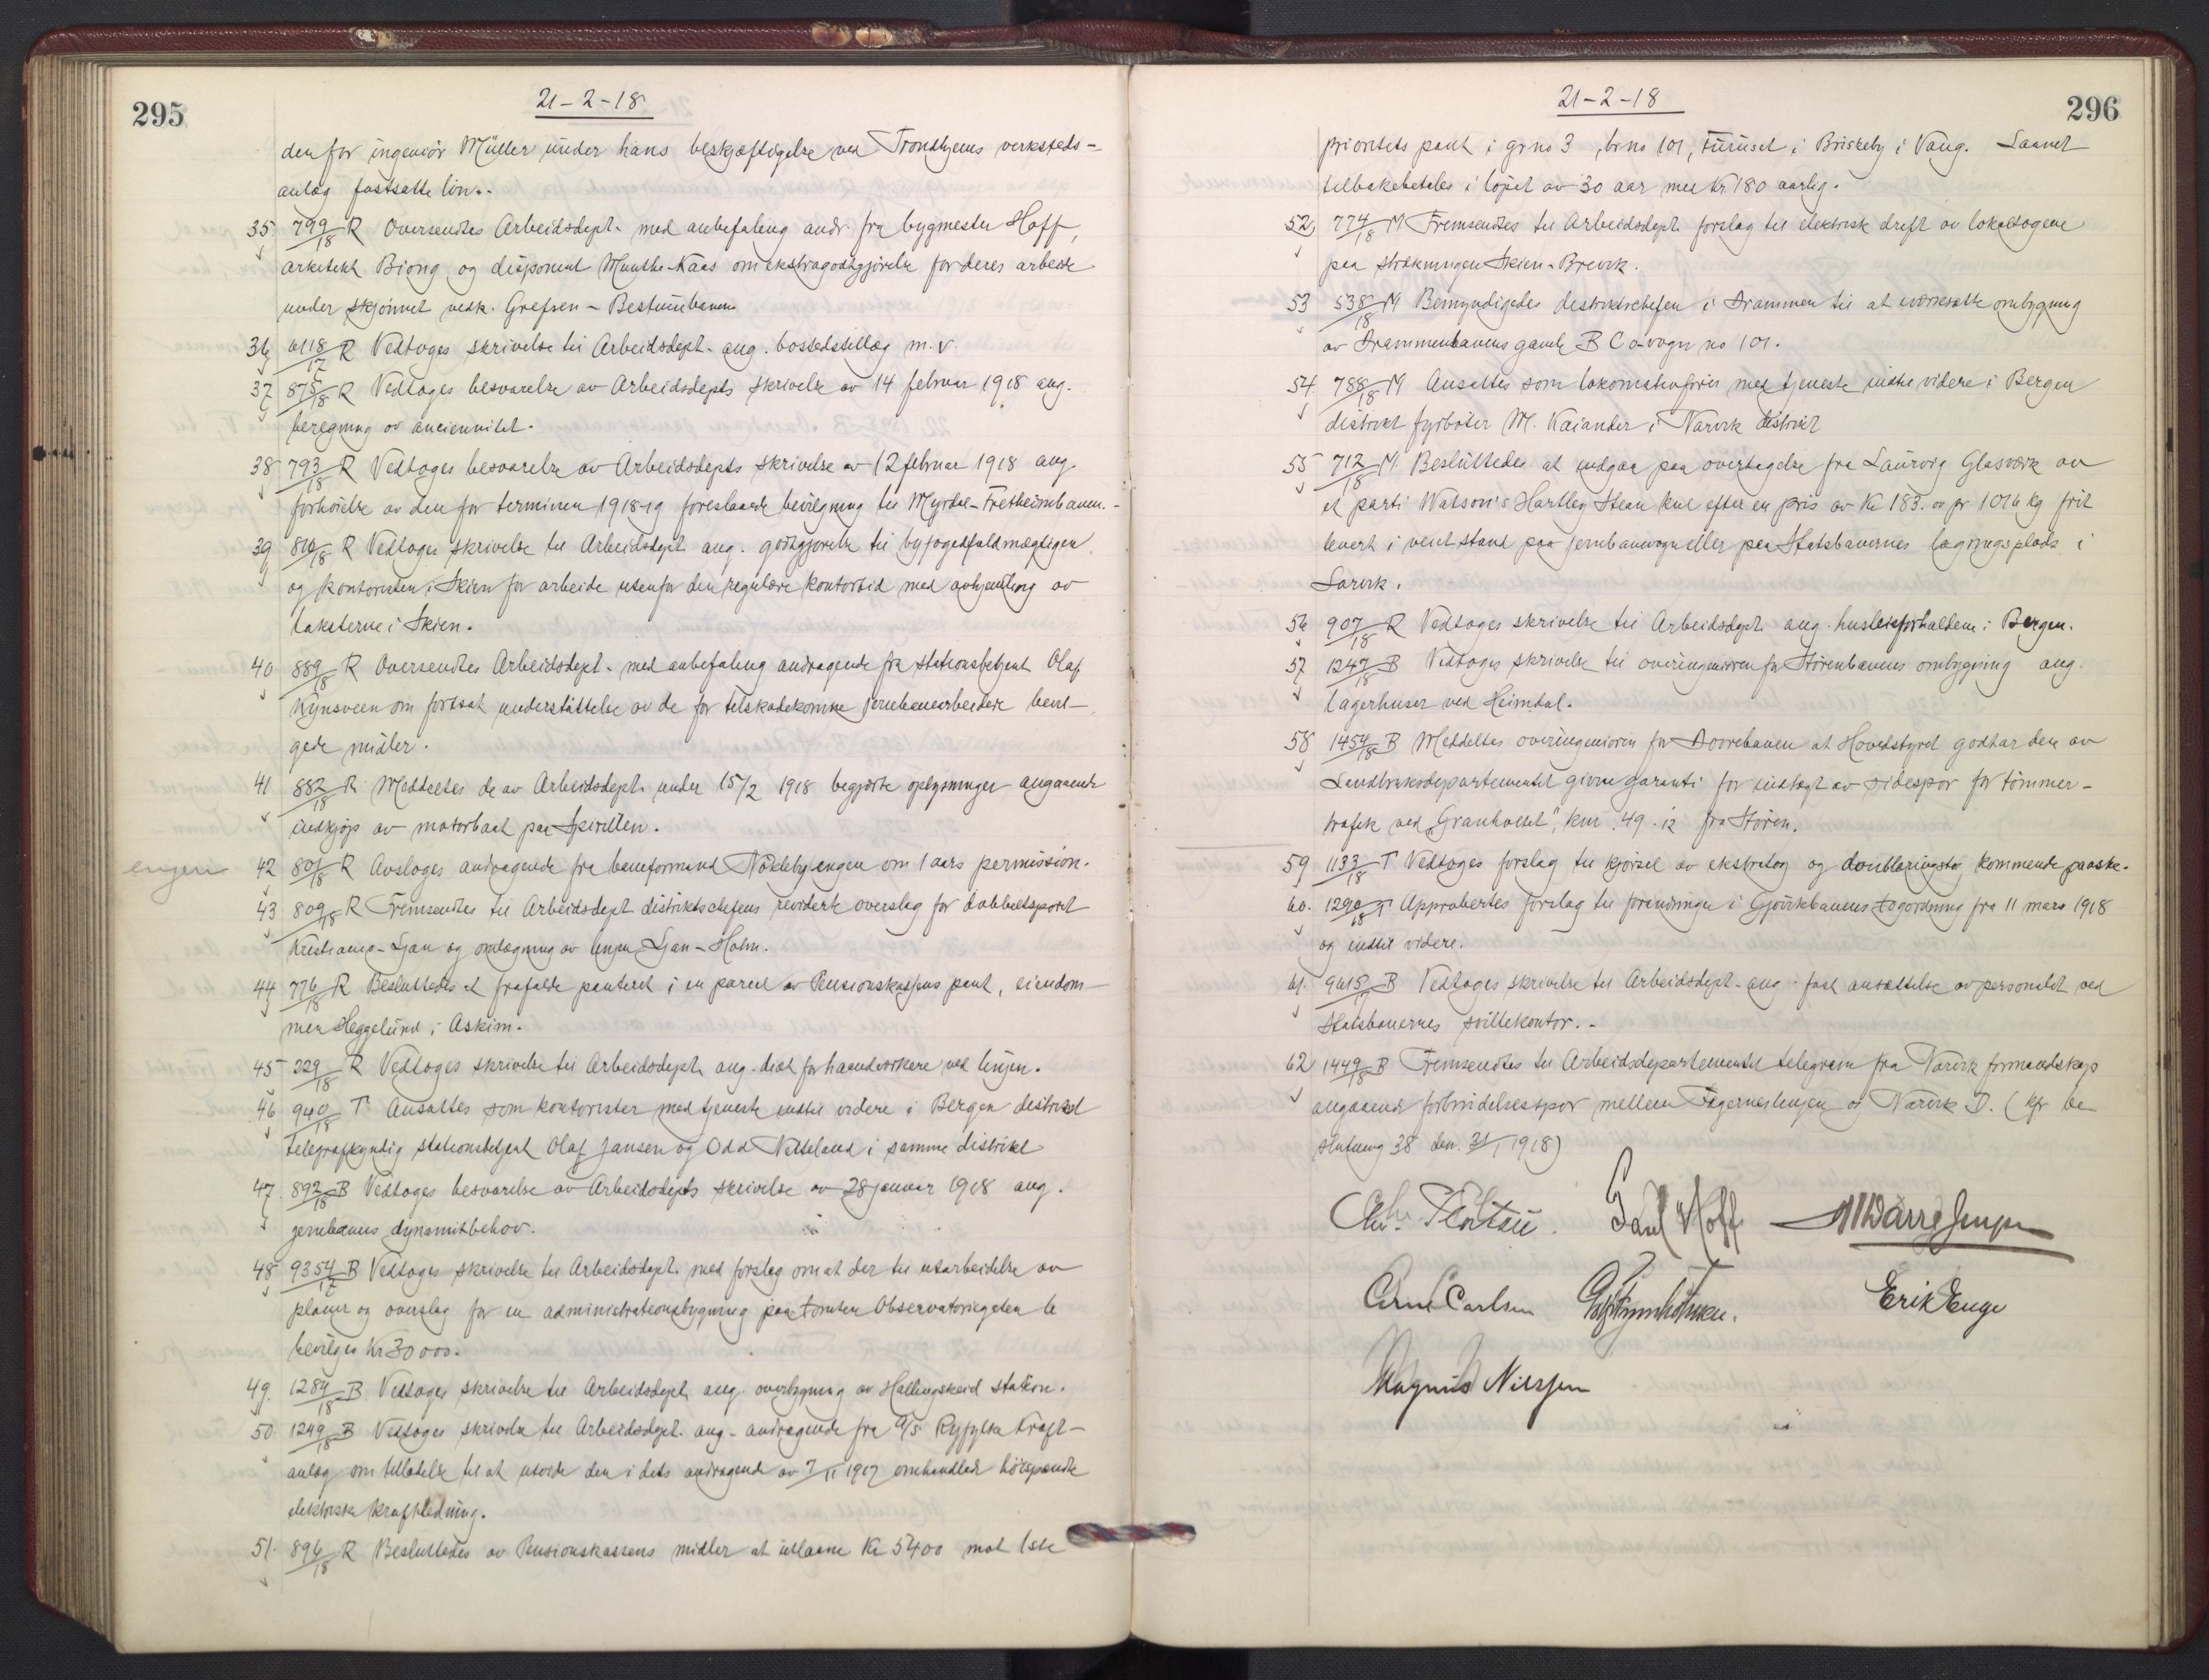 295
21-2-18
den for ingeniør Müller under hans beskjæftigelse ved Trondhjems verksteds-
anlæg fastsatte løn.-
35 799/18 R Oversendtes Arbeidsdept. med anbefaling andr. fra bygmester Hoff,
arkitekt Biong og disponent Munthe-Kaas om ekstragodtgjørelse for deres arbeide
under skjønnet vedk. Grefsen-Bestumbanen.
36 6118/17 R Vedtoges skrivelse til Arbeidsdept. ang. bostedstillæg m.v.
37 875/18 R Vedtoges besvarelse av Arbeidsdepts skrivelse av 14 februar 1918 ang.
beregning av anciennitet.
38 793/18 R Vedtoges besvarelse av Arbeidsdepts skrivelse av 12 februar 1918 ang.
forhøielse av den for terminen 1918-19 foreslaaede bevilgning til Myrdal-Fretheimbanen.-
39 810/18 R Vedtoges skrivelse til Arbeidsdept. ang. godtgjørelse til byfogedfuldmægtigen
og kontoristen i Skien for arbeide utenfor den regulære kontortid med avhjemling av
taksterne i Skien.
40 889/18 R Oversendtes Arbeidsdept. med anbefaling andragende fra stationsbetjent Olaf
Kynsveen om fortsat understøttelse av de for tilskadekomne jernbanearbeidere bevil-
gede midler.
41 882/18 R Meddeeltes de av Arbeidsdept. under 15/2 1918 begjærte oplysninger angaaende
indkjøp av motorbaat paa Spirillen.
engen 42 801/18 R Avsloges andragende fra baneformand Nökleby engen om 1 aars permission.
43 809/18 R Fremsendtes til Arbeidsdept. distriktschefens reviderte overslag for dobbeltsporet
Kristiania-Ljan og omlægning av linjen Ljan-Holm.
44 776/18 R Besluttedes at frafalde panteret i en parcel av Pensionskassens pant, eiendom-
men Heggelund i Askim.
45 229/18 R Vedtoges skrivelse til Arbeidsdept. ang. diæt for haandverkere ved linjen.
46 940/18 T Ansattes som kontorister med tjeneste indtil videre i Bergen distrikt
telegrafkyndig stationsbetjent Olaf Jansen og Odd Natteland i samme distrikt
47 892/18 B Vedtoges besvarelse av Arbeidsdepts skrivelse av 28 januar 1918 ang.
jernbanens dynamitbehov.
48 9354/17 B Vedtoges skrivelse til Arbeidsdept. med forslag om at der til utarbeidelse av
planer og overslag for en administrationsbygning paa tomten Observatoriegaten 1b
bevilges kr 30000.
49 1284/18 B Vedtoges skrivelse til Arbeidsdept. ang. overbygning av Hallingskeid station.
50 1249/18 B Vedtoges skrivelse til Arbeidsdept. ang. andragende fra A/S Ryfylke Kraft-
anlæg om tilladelse til at utvide den i dets andragende av 7/11 1917 omhandlede høispændte
elektriske kraftledning.
51. 896/18 R Besluttedes av Pensionskassens midler at utlaane Kr 5400 mot 1ste
296
21-2-18
prioritets pant i grno 3, brno 101, Furuset i Briskeby i Vang. Laanet
tilbakebetales i løpet av 30 aar med kr 180 aarlig.
52 774/18 M Fremsendtes til Arbeidsdept. forslag til elektrisk drift av lokaltogene
paa strækningen Skien-Brevik.
53 538/18 M Bemyndigedes distriktschefen i Drammen til at iverksætte ombygning
av Drammenbanens gamle B C o-vogn no 101.
54 788/18 M Ansattes som lokomotivfører med tjeneste indtil videre i Bergen
distrikt fyrbøter M. Kaiander i Narvik distrikt
55 712/18 M Besluttedes at indgaa paa overtagelse fra Laurvig Glasværk av
et parti Watson's Hartley Steam kul efter en pris av Kr 183.00 pr 1016 kg frit
levert i veiet stand paa jernbanevogn eller paa Statsbanernes lagringsplads i
Larvik.
56 907/18 R Vedtoges skrivelse til Arbeidsdept. ang. husleieforholdene i Bergen.
57 1247/18 B Vedtoges skrivelse til overingeniøren for Størenbanens ombygning ang.
lagerhuser ved Heimdal.
58 1454/18 B Meddeltes overingeniøren for Dovrebanen at Hovedstyret godtar den av
Landbruksdepartementet givne garanti for indtægt av sidespor for tømmer-
trafik ved "Granholtet", km. 49.12 fra Støren.
59 1133/18 T Vedtoges forslag til kjørsel av ekstratog og doubleringstog kommende paaske.
60. 1290/18 T Approbertes forslag til forandringer i Gjøvikbanens togordning fra 11 mars 1918
og indtil videre.
61. 9615/17 B Vedtoges skrivelse til Arbeidsdept. ang. fast ansættelse av personalet ved
Statsbanernes svillekontor.-
62 1449/18 B Fremsendtes til Arbeidsdepartementet telegram fra Narvik formandskap
angaaende forbindelsesspor mellem Fagerneslinjen og Narvik D. (kfr be-
slutning 38 den 31/1 1918)
Chr. Platou. Paul Hoff
Arne Carlsen Erik Enge
Magnus Nilssen